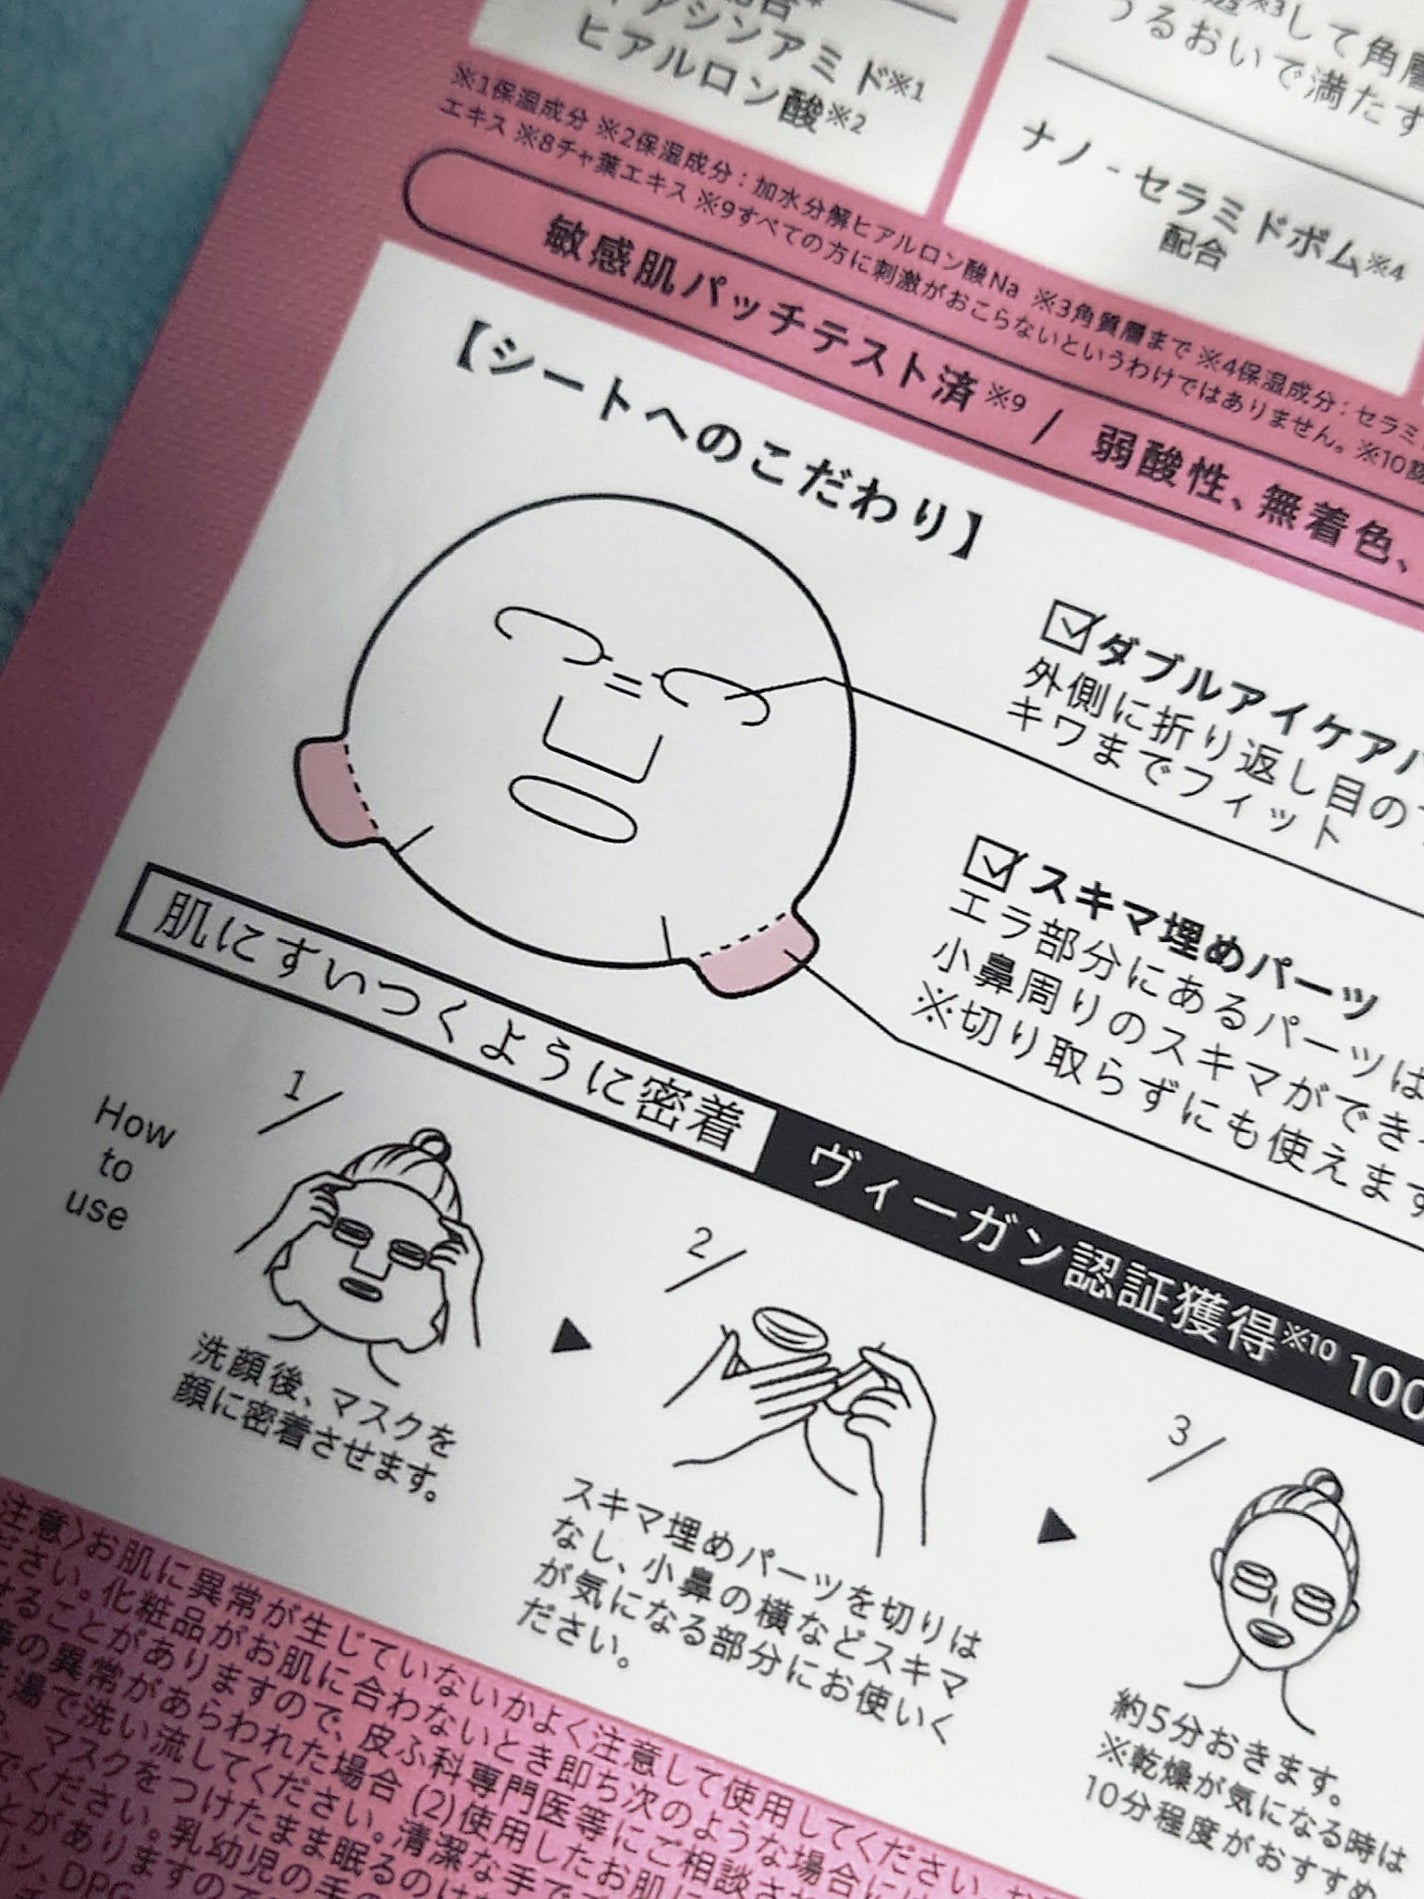 ナイアシンアミド※1
ヒアルロン酸※2
※3して角層
うるおいで満たす
ナノ-セラミドボム※4
配合
※1保湿成分 ※2保湿成分：加水分解ヒアルロン酸Na ※3角質層まで ※4保湿成分：セラミ
エキス ※8チャ葉エキス ※9すべての方に刺激がおこらないというわけではありません。※10
敏感肌パッチテスト済※9 / 弱酸性、無着色、
【シートへのこだわり】
ダブルアイケア
外側に折り返し目の
キワまでフィット
スキマ埋めパーツ
エラ部分にあるパーツは
小鼻周りのスキマができ
※切り取らずにも使えます
肌にすいつくように密着
ヴィーガン認証獲得※10 100
How
to
use
1/
洗顔後、マスクを
顔に密着させます。
2/
スキマ埋めパーツを切りは
なし、小鼻の横などスキマ
が気になる部分にお使いく
ださい。
3/
約5分おきます。
※乾燥が気になる時は
10分程度がおすすめ
注意〉お肌に異常が生じていないかよく注意して使用してください。
ださい。化粧品がお肌に合わないとき即ち次のような場合には
することがありますので、皮ふ科専門医等にご相談さ
等の異常があらわれた場合 (2)使用したお肌に
湯で洗い流してください。清潔な手で
マスクをつけたまま眠るのは
でください。乳幼児の手の
とがありますので